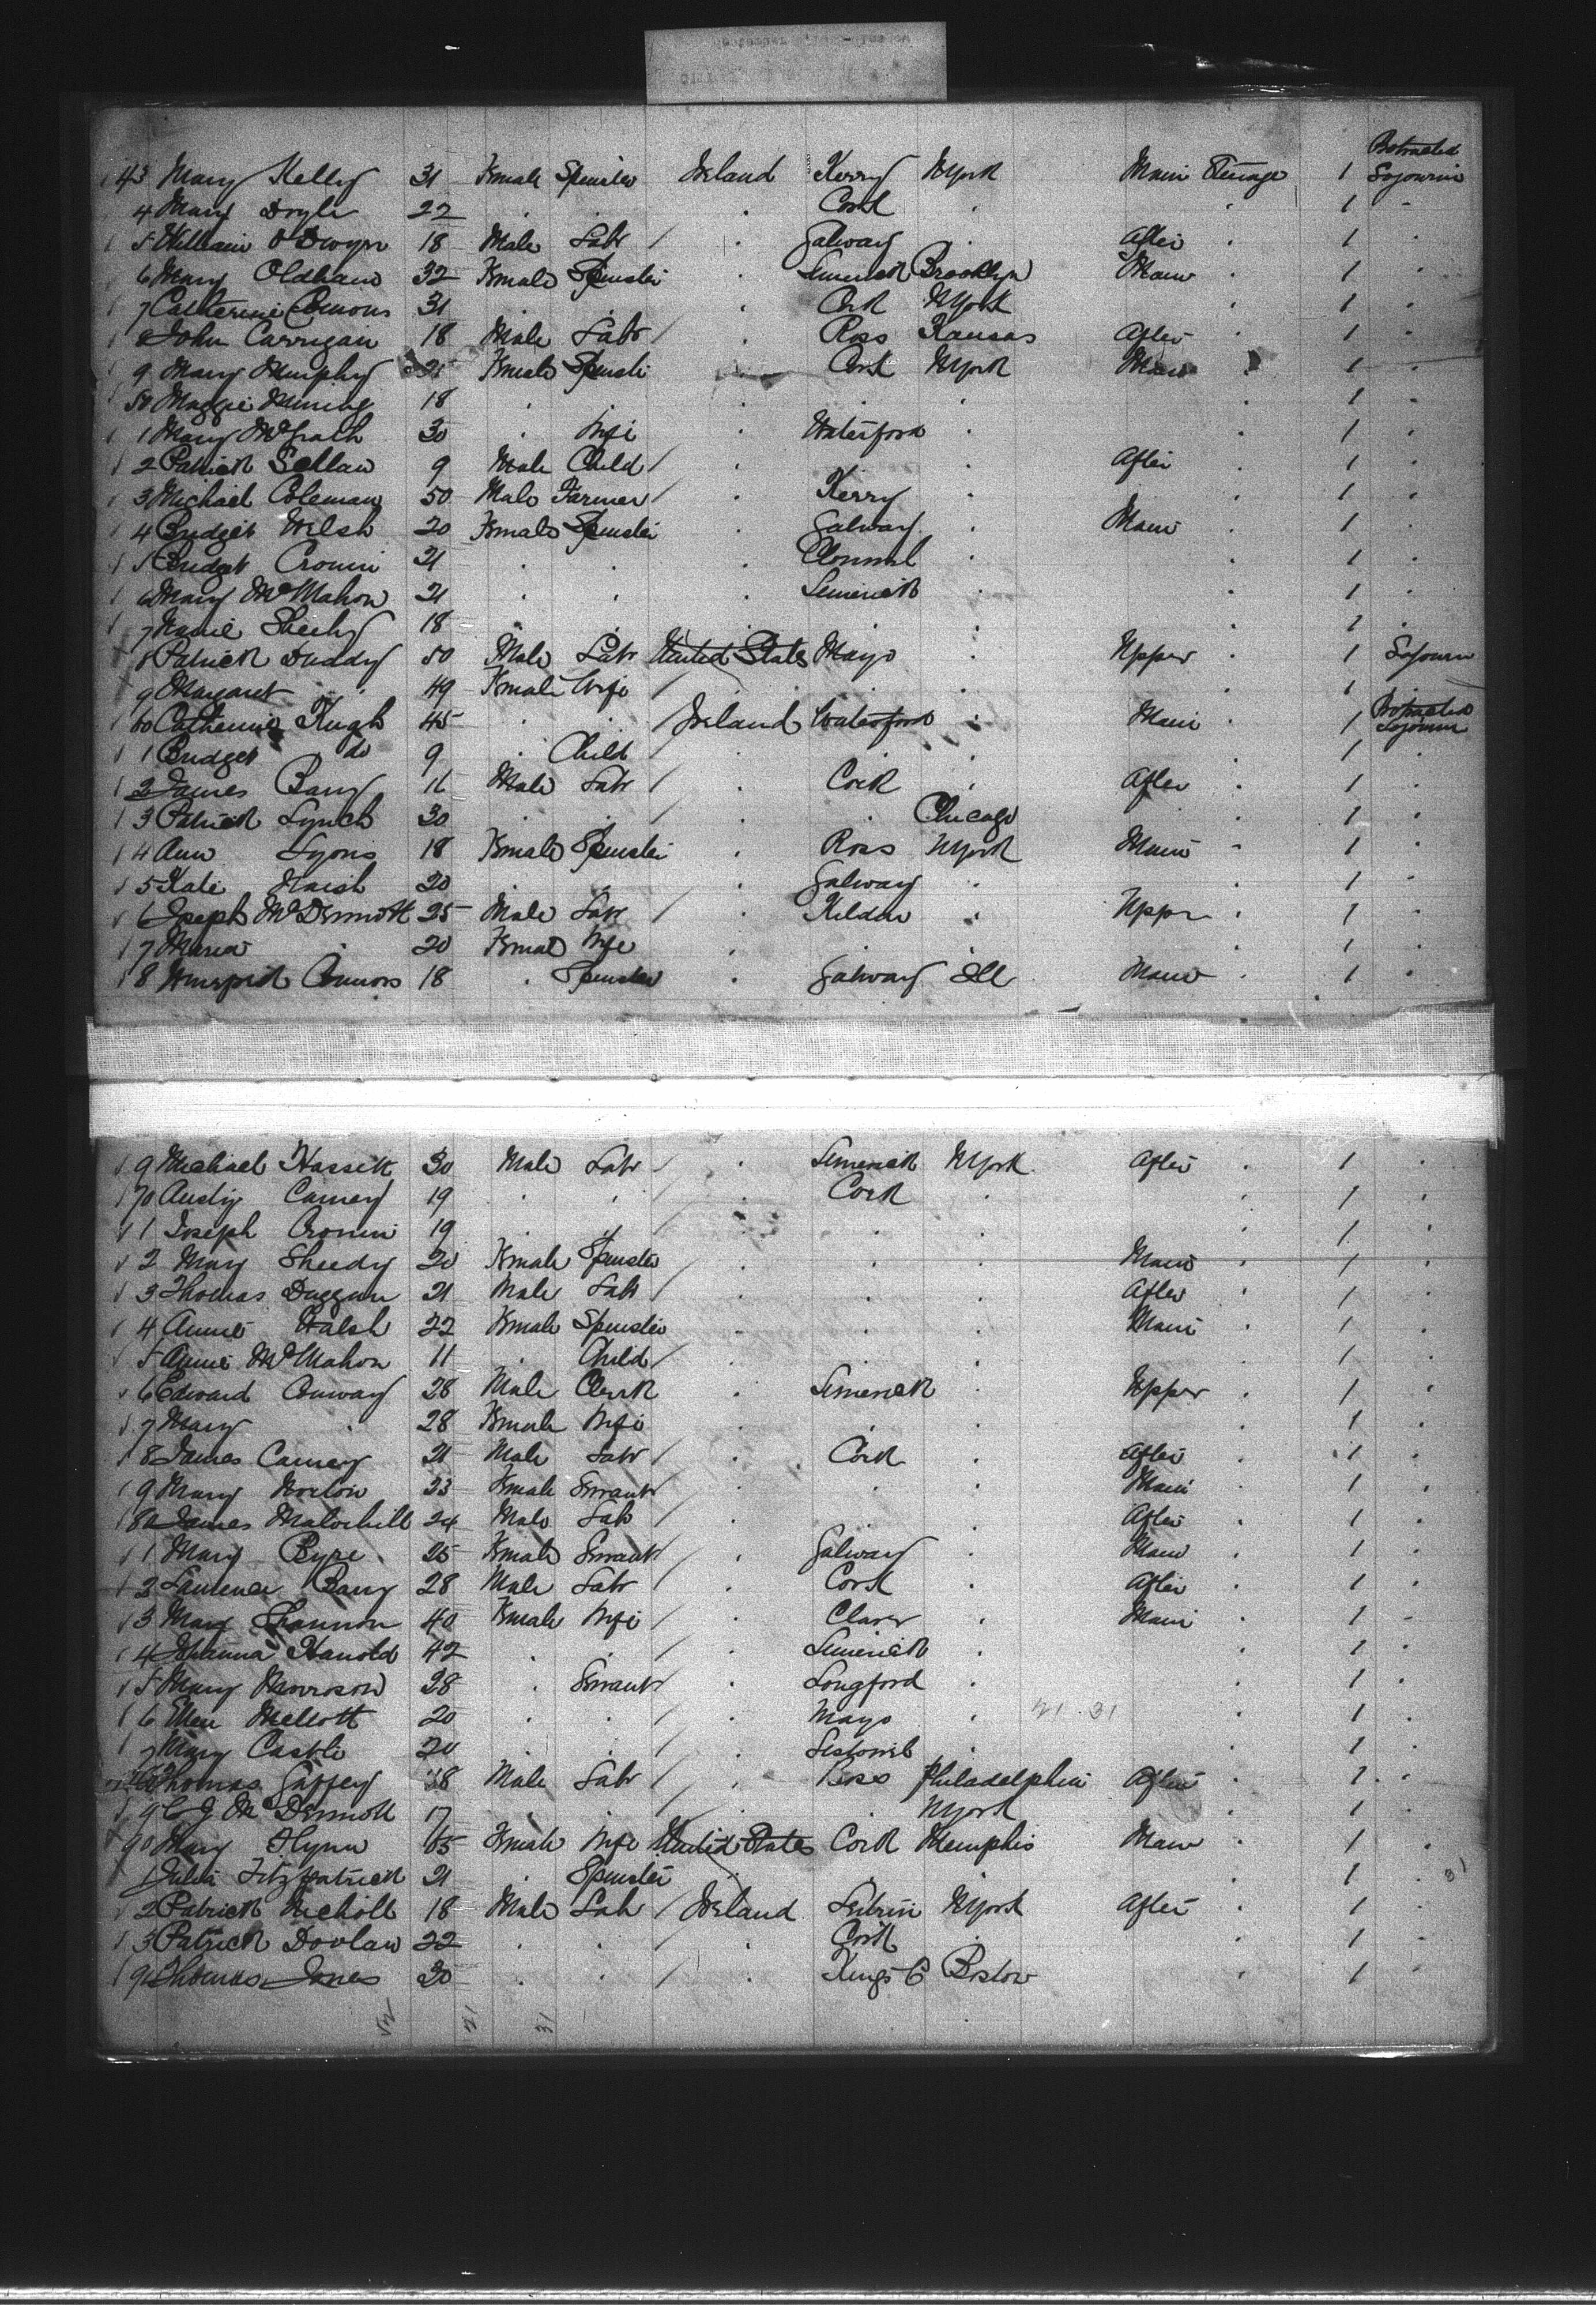 43 Mary Kelly 31 Female Spinster Ireland Kerry NYork Main Steerage 1 Protracted Sojourn
4 Mary Doyle 22 " " Cork " " 1 "
5 William O Dwyer 18 Male Labr / " Galway " After " 1 "
6 Mary Oldham 32 Female Spinster " Limerick Brooklyn Main " 1 "
7 Catherine Connors 31 " " " Cork NYork " 1 "
8 John Carrigan 18 Male Labr / " Ross Kansas After " 1 "
9 Mary Murphy 21 Female Spinster " Cork NYork Main " 1 "
50 Maggie 18 " " " " " " 1 "
1 Mary McGrath 30 " Wife " Waterford " " 1 "
2 Patrick 9 Male Child / " " " After " 1 "
3 Michael Coleman 50 Male Farmer / " Kerry " " 1 "
4 Bridget Welsh 20 Female Spinster " Galway " Main " 1 "
5 Bridget Cronin 21 " " " Clonmel " " 1 "
6 Mary McMahon 21 " " " Limerick " " 1 "
7 Sheehy 18 " " " " " " 1 "
8 Patrick Duddy 50 Male Labr United States Mayo " Upper " 1 Sojourn
9 Margaret " 49 Female Wife / " " " 1 "
60 Catherine Keugh 45 " " / Ireland Waterford " Main " 1 Protracted Sojourn
1 Bridget do 9 " Child " " 1 "
2 James Barry 16 Male Labr / " Cork " After " 1 "
3 Patrick Lynch 30 " " / " " Chicago " 1 "
4 Ann Lyons 18 Female Spinster " Ross NYork Main " 1 "
5 Kate Naish 20 " " " Galway " " 1 "
6 Joseph McDermott 25 Male Labr / " Kildare " Upper " 1 "
7 Maria " 20 Female Wife " " " " 1 "
8 Connors 18 " Spinster " Galway Ill Main " 1 "
9 Michael Hassett 30 Male Labr / " Limerick NYork After " 1 "
70 Carney 19 " " / " Cork " " 1 "
1 Joseph Cronin 19 " " / " " " " 1 "
2 Mary Sheedy 20 Female Spinster / " " " Main " 1 "
3 Thomas Duggan 21 Male Labr / " " " After " 1 "
4 Annie Walsh 22 Female Spinster " " " Main " 1 "
5 Annie McMahon 11 " Child / " " " " 1 "
6 Edward Conway 28 Male Clerk " Limerick " Upper " 1 "
7 Mary " 28 Female Wife " " " " 1 "
8 James Carney 21 Male Labr / " Cork " After " 1 "
9 Mary 23 Female Servant / " " " Main " 1 "
80 James 24 Male Labr / " " " After " 1 "
1 Mary Byre 25 Female Servant / " Galway " Main " 1 "
2 Laurence Barry 28 Male Labr / " Cork " After " 1 "
3 Mary Shannon 40 Female Wife / " Clare " Main " 1 "
4 Johanna Hanold 42 " " / " Limerick " " 1 "
5 Mary Morrison 28 " Servant " Longford " " 1 "
6 Ellen Mellott 20 " " / " Mayo " 21 31 " 1 "
7 Mary Castle 20 " " / " " " 1 "
Thomas Gaffey 38 Male Labr / " Ross Philadelphia After " 1 "
9 McDermott 17 " " / " " NYork " 1 "
90 Mary Flynn 65 Female Wife United States Cork Memphis Main " 1 "
1 Julia Fitzpatrick 21 " Spinster " " " " 1 " 31
2 Patrick Nicholl 18 Male Labr / Ireland Leitrim NYork After " 1 "
3 Patrick Doolan 22 " " / " Cork " " 1 "
94 Thomas Jones 20 " " / " Kings C Boston " 1 "
52 21 31